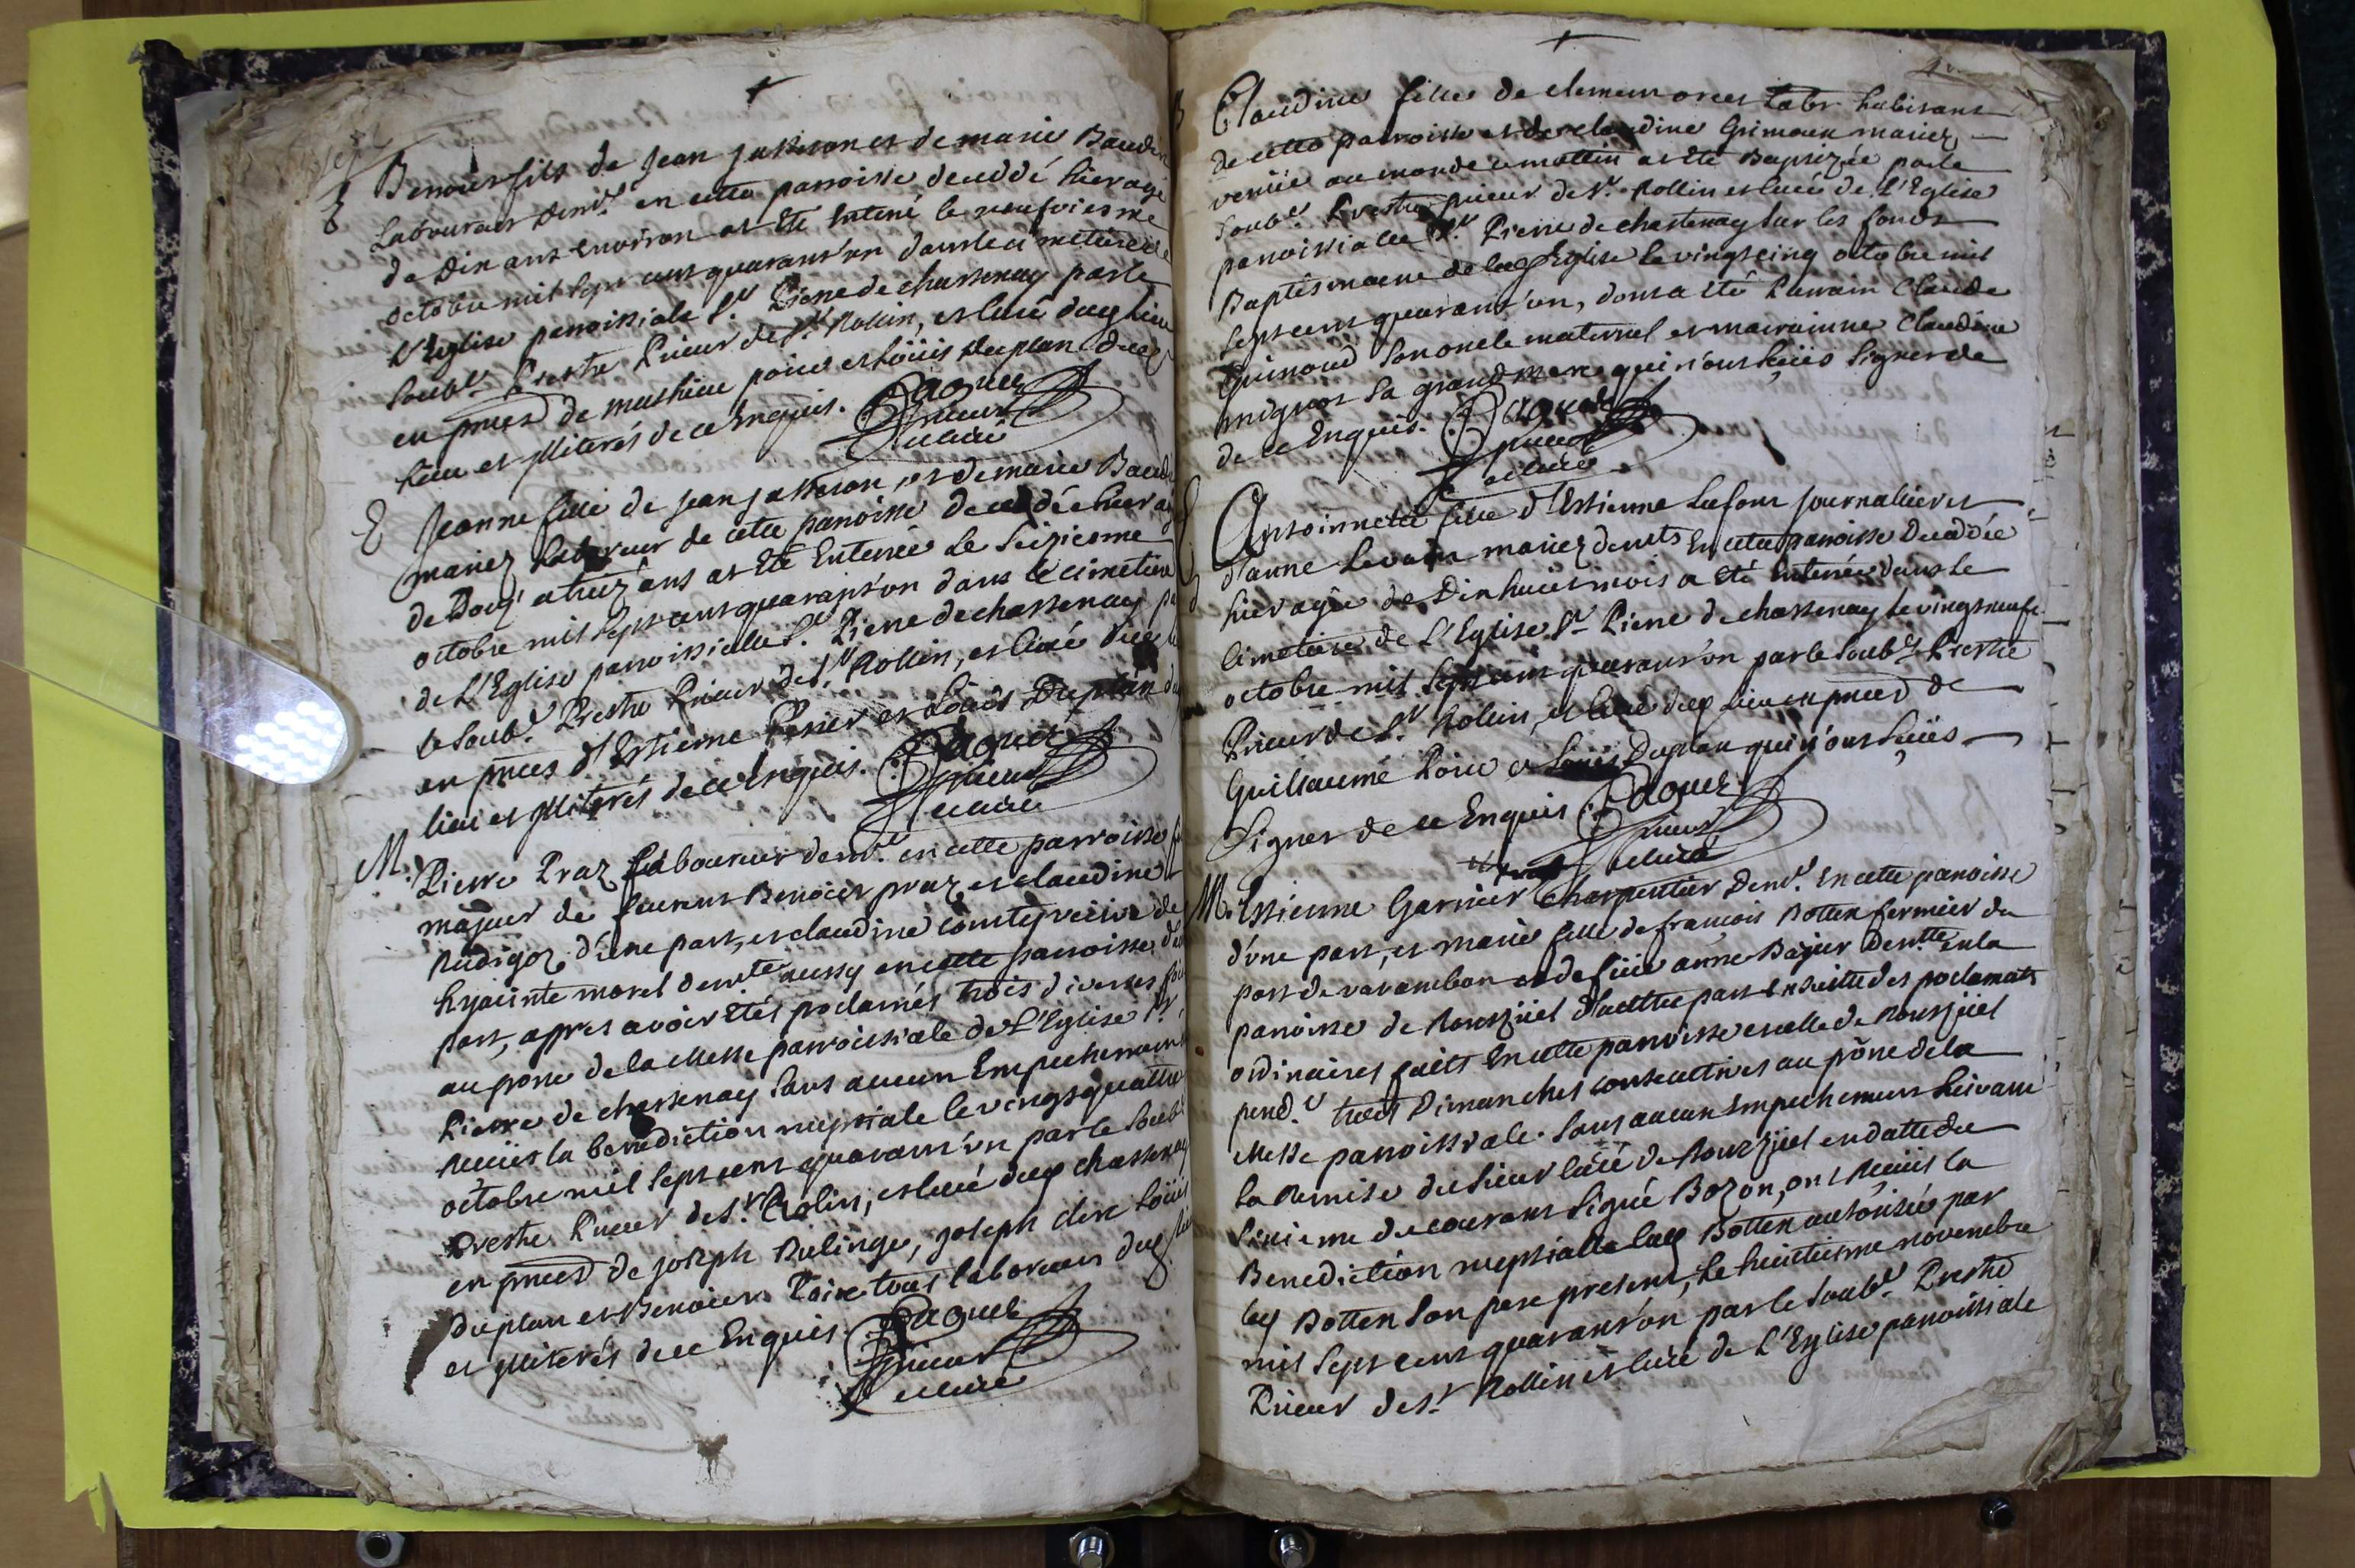 E Benoist fils de Jean Jasseron et de marie Baudin
Laboureur demt. en cette parroisse decedé hier agé
de Dix ans Environ at Eté Enterré le neufviesme
octobre mil sept cent quarant'un dans le cimetiere de
L'Eglise parroissiale St. Pierre de chastenay par le
soubné. Prestre Prieur de St. Rollin, et Curé dud lieu
en pnces de mathieu poire et Loüis duplan dud
lieu et illiterés de ce Enquis. Paquet
prieur
et curé
E Jeanne fille de Jean Jasseron et de marie Baudin
mariez Laboureur de cette parroisse decedée hier agée
de Douz' a treiz' ans at Eté Enterrée Le Seiziesme
octobre mil sept cent quarant'un dans le cimetiere
de L'Eglise parroissialle St. Pierre de chastenay par
le soubné. Prestre Prieur de St. Rollin, et Curé dud
en pnces d'Estienne Perier et Loüis Duplan du
lieu et illiterés de ce Enquis. Paquet
prieur
et curé
M. Pierre Praz Laboureur demt. en cette parroisse fils
majeur de feu Benoist praz et claudine
Rudigoz d'une part, et claudine comte veuve de
hyacinte morel demte aussy en cette parroisse d'autre
part, apres avoir Etés proclamés trois diverses fois
au prone de la Messe parroissiale de L'Eglise St.
Pierre de chastenay sans aucun Empechement
Reçüs la benediction nuptiale le vingtquattre
octobre mil sept cent quarant'un par le soubné
Prestre Prieur de St. Rolin, et curé dud chastenay
en pnces de joseph Bulinge, joseph clerc Loüis
Duplan et Benoist Poire tous laboureurs dud lieu
et illiterés de ce Enquis Paquet
prieur
et curé
Claudine fille de clement et labr. habitant
de cette parroisse et de claudine Grimoud mariez
venüe au monde ce mattin at Eté Baptizée par le
soubné. Prestre prieur de St. Rollin et curé de L'Eglise
parroissialle St. Pierre de chastenay sur les fonds
Baptismaux de lad Eglise le vingtcinq octobre mil
sept cent quarant'un, dont a Eté Parrain Claude
Grimoud son oncle maternel et marrainne Claudine
mignot sa grand mere qui n'ont sçüs signer de
de ce Enquis. Paquet
prieur
et curé
Antoinette fille d'Estienne Lafont journallier et
d'anne mariez demts En cette parroisse Decedée
hier agée de Dix huict mois a Eté Enterrée dans le
Cimetiere de L'Eglise St Pierre de chastenay le vingtneufe
octobre mil sept cent quarant'un par le soubné. Prestre
Prieur de St. Rolin, et Curé dud lieu en pnces de
Guillaume Poire et Loüis Duplan qui n'ont sçüs
Signer de ce Enquis Paquet
prieur
et curé
M. Estienne Garnier Charpentier Demt. En cette parroisse
d'une part, et marie fille de francois Botten fermier du
port de varambon et de füe anne Bajus Demtte en la
parroisse de Rouzjüel d'autre part Ensuitte des proclamats
ordinaires faits En cette parroisse et celle de Rouzjüel
pendt. trois Dimanches consecutives au prône de la
Messe parroissiale. Sans aucun Empechement suivant
la Remise du sieur Curé de Rouzjüel en datte du
Sixieme du courant Signé Bozon, ont Reçüs la
Benediction nuptialle lad Botten authorisée par
led Botten son pere present, le huictiesme novembre
mil sept cent quarant'un par le soubné. Prestre
Prieur de St Rollin et Curé de L'Eglise parroissiale